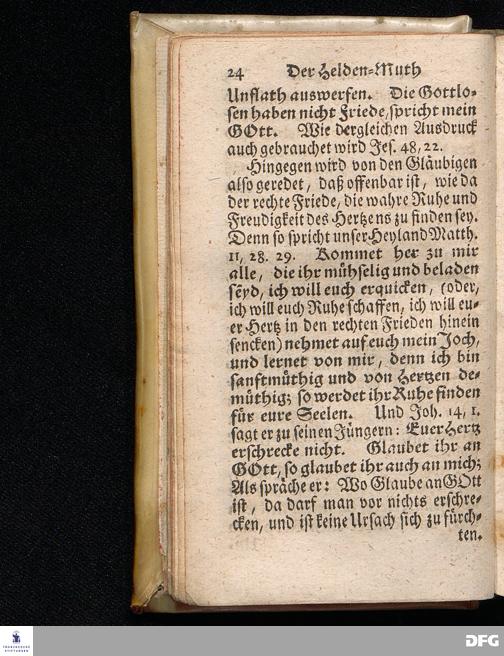 24 Der Helden-Muth
Unflath auswerfen. Die Gottlo-
sen haben nicht Friede, spricht mein
GOtt. Wie dergleichen Ausdruck
auch gebrauchet wird Jes. 48, 22.
Hingegen wird von den Gläubigen
also geredet, daß offenbar ist, wie da
der rechte Friede, die wahre Ruhe und
Freudigkeit des Hertzens zu finden sey.
Denn so spricht unser Heyland Matth.
11, 28. 29. Kommet her zu mir
alle, die ihr mühselig und beladen
seyd, ich will euch erquicken, (oder,
ich will euch Ruhe schaffen, ich will eu-
er Hertz in den rechten Frieden hinein
sencken) nehmet auf euch mein Joch,
und lernet von mir, denn ich bin
sanftmüthig und von Hertzen de-
müthig; so werdet ihr Ruhe finden
für eure Seelen. Und Joh. 14, 1.
sagt er zu seinen Jüngern: Euer Hertz
erschrecke nicht. Glaubet ihr an
GOtt, so glaubet ihr auch an mich;
Als spräche er: Wo Glaube an GOtt
ist, da darf man vor nichts erschre-
cken, und ist keine Ursach sich zu fürch-
ten.
FRANCKESCHE
STIFTUNGEN
DFG